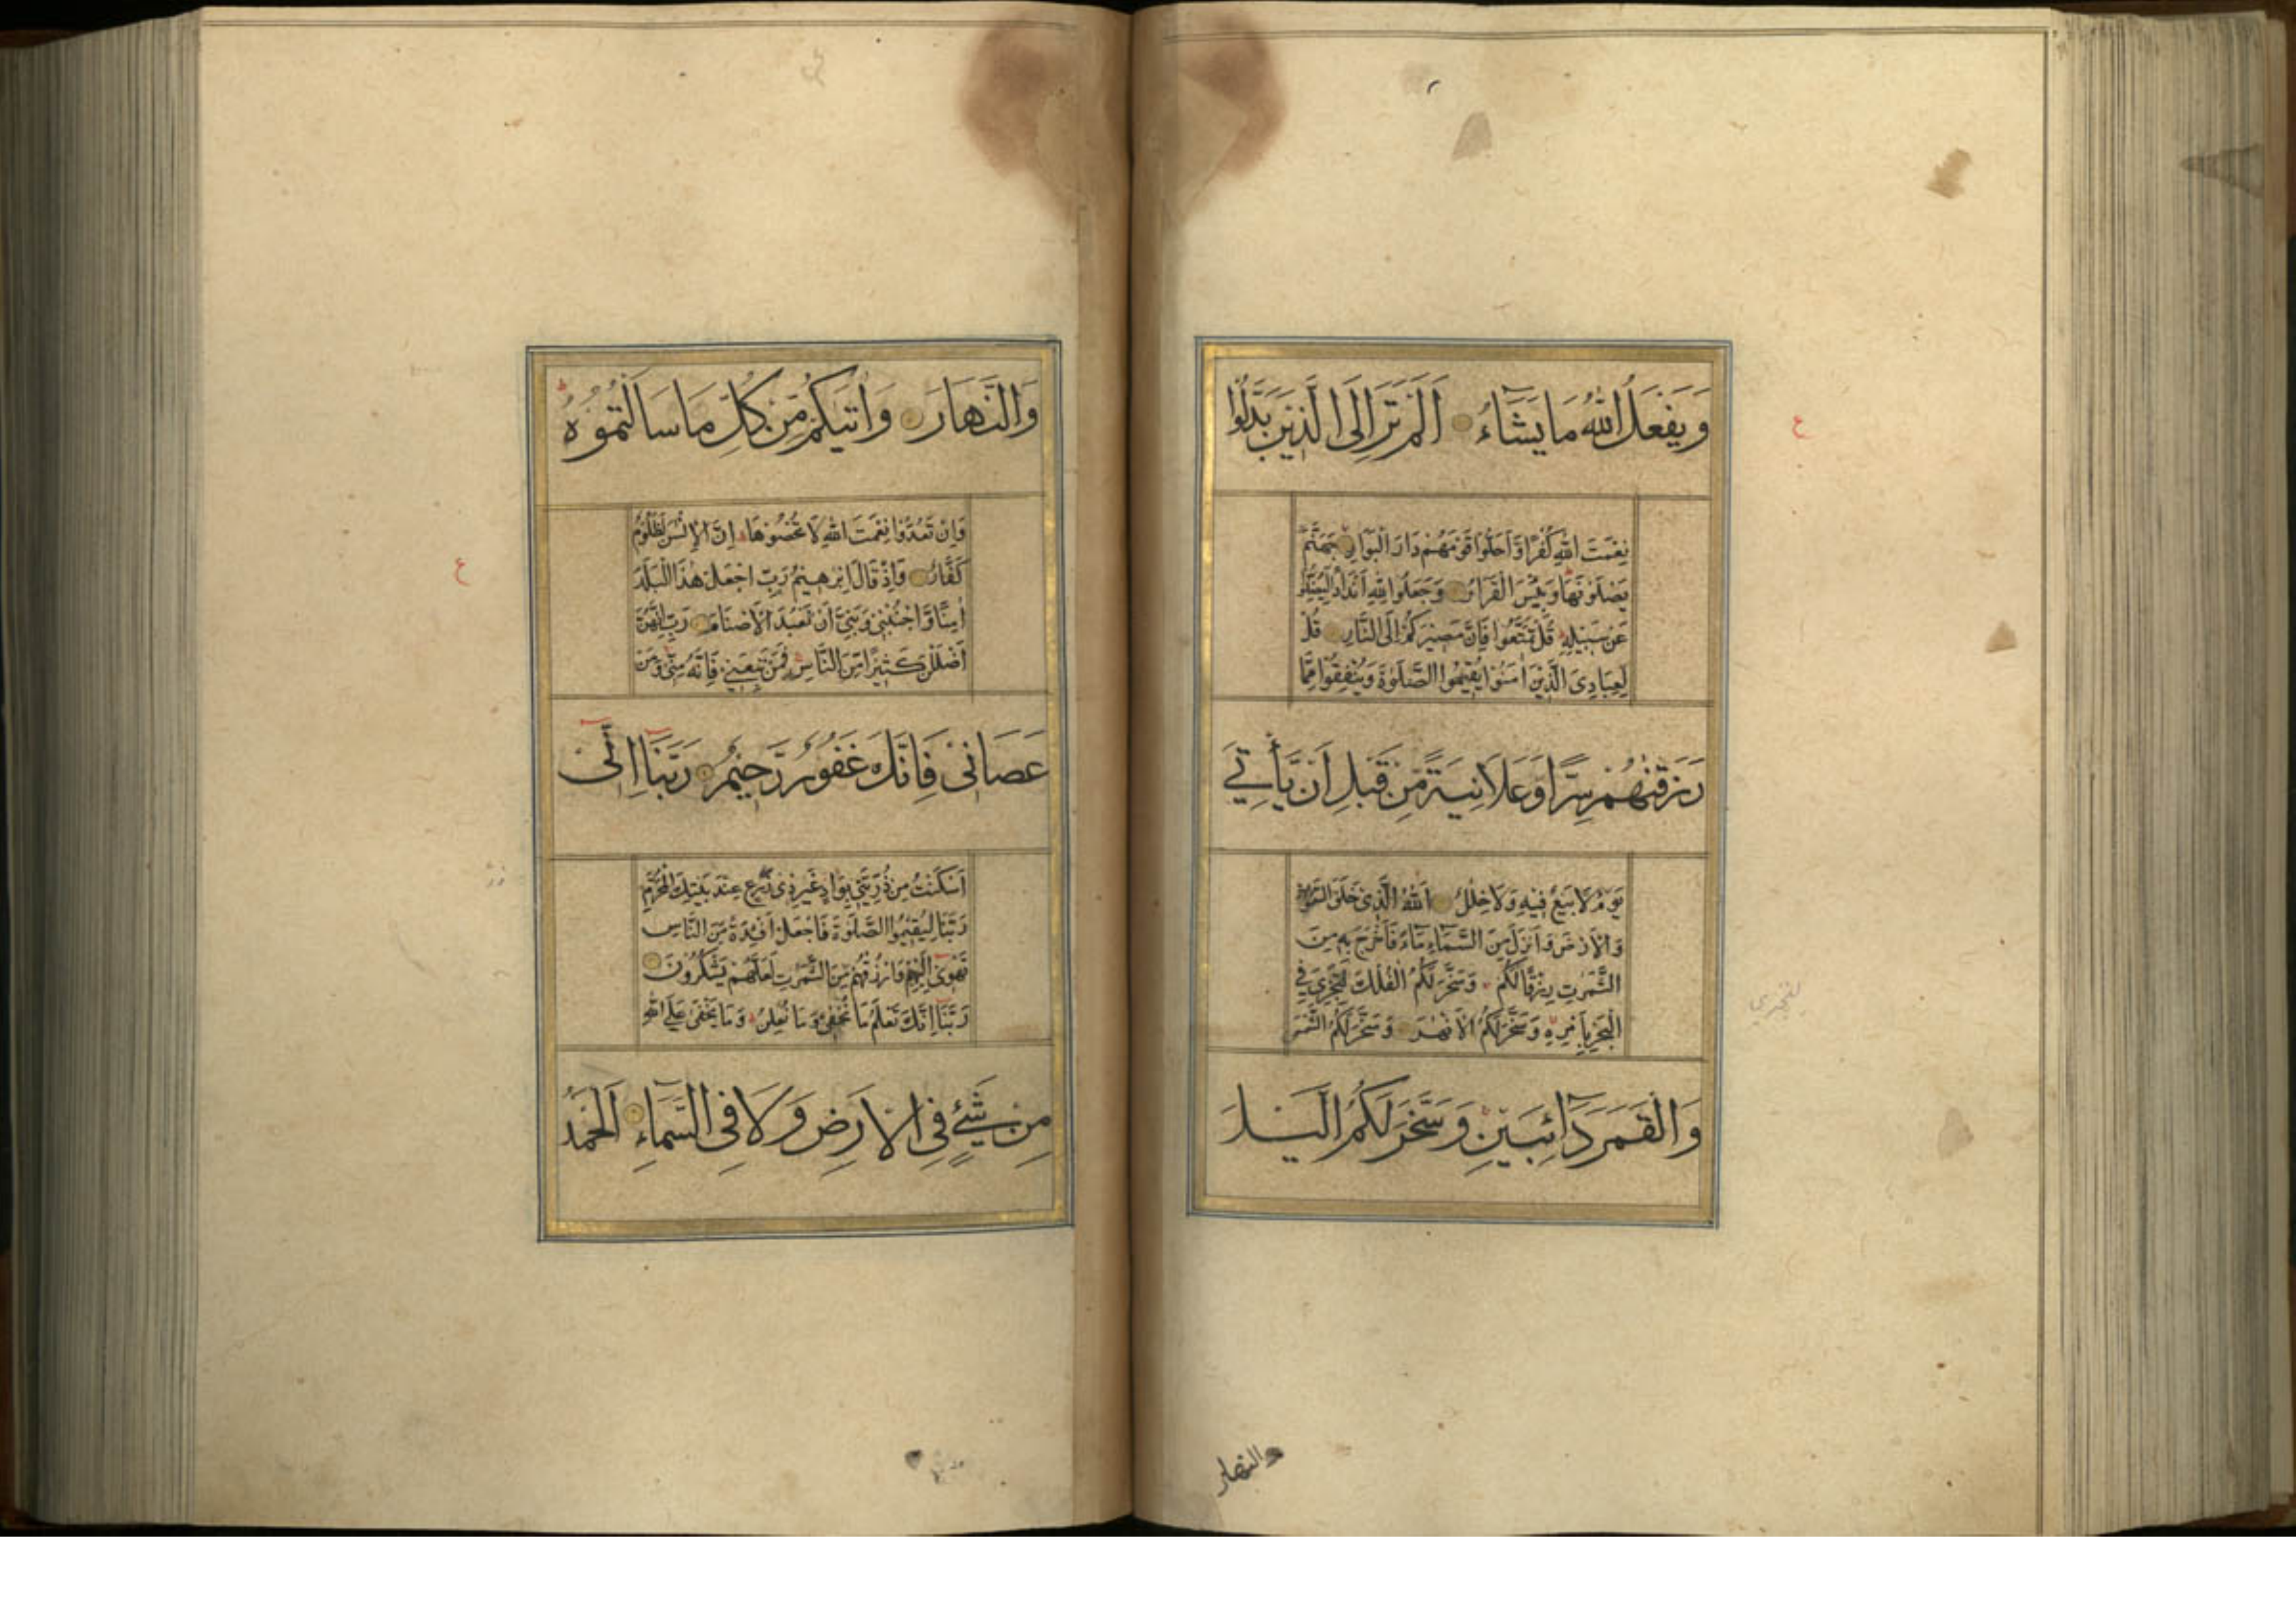 وَيَفْعَلُ اللّٰهُ مَا يَشَآءُ اَلَمْ تَرَ اِلَى الَّذِيْنَ بَدَّلُوْا
نِعْمَتَ اللّٰهِ كُفْرًا وَّاَحَلُّوْا قَوْمَهُمْ دَارَ الْبَوَارِ جَهَنَّمَ
يَصْلَوْنَهَا وَبِئْسَ الْقَرَارُ وَجَعَلُوْا لِلّٰهِ اَنْدَادًا لِّيُضِلُّوْا
عَنْ سَبِيْلِهٖ قُلْ تَمَتَّعُوْا فَاِنَّ مَصِيْرَكُمْ اِلَى النَّارِ قُلْ
لِّعِبَادِىَ الَّذِيْنَ اٰمَنُوْا يُقِيْمُوا الصَّلٰوةَ وَيُنْفِقُوْا مِمَّا
رَزَقْنٰهُمْ سِرًّا وَّعَلَانِيَةً مِّنْ قَبْلِ اَنْ يَّأْتِيَ
يَوْمٌ لَّا بَيْعٌ فِيْهِ وَلَا خِلٰلٌ اَللّٰهُ الَّذِىْ خَلَقَ السَّمٰوٰتِ
وَالْاَرْضَ وَاَنْزَلَ مِنَ السَّمَآءِ مَآءً فَاَخْرَجَ بِهٖ مِنَ
الثَّمَرٰتِ رِزْقًا لَّكُمْ وَسَخَّرَ لَكُمُ الْفُلْكَ لِتَجْرِىَ فِى
الْبَحْرِ بِاَمْرِهٖ وَسَخَّرَ لَكُمُ الْاَنْهٰرَ وَسَخَّرَ لَكُمُ الشَّمْسَ
وَالْقَمَرَ دَآئِبَيْنِ وَسَخَّرَ لَكُمُ الَّيْلَ
والنهار
ع
وَالنَّهَارَ وَاٰتٰىكُمْ مِّنْ كُلِّ مَا سَاَلْتُمُوْهُ
وَاِنْ تَعُدُّوْا نِعْمَتَ اللّٰهِ لَا تُحْصُوْهَا اِنَّ الْاِنْسٰنَ لَظَلُوْمٌ
كَفَّارٌ وَاِذْ قَالَ اِبْرٰهِيْمُ رَبِّ اجْعَلْ هٰذَا الْبَلَدَ
اٰمِنًا وَّاجْنُبْنِىْ وَبَنِىَّ اَنْ نَّعْبُدَ الْاَصْنَامَ رَبِّ اِنَّهُنَّ
اَضْلَلْنَ كَثِيْرًا مِّنَ النَّاسِ فَمَنْ تَبِعَنِىْ فَاِنَّهٗ مِنِّىْ وَمَنْ
عَصَانِىْ فَاِنَّكَ غَفُوْرٌ رَّحِيْمٌ رَبَّنَآ اِنِّىْٓ
اَسْكَنْتُ مِنْ ذُرِّيَّتِىْ بِوَادٍ غَيْرِ ذِىْ زَرْعٍ عِنْدَ بَيْتِكَ الْمُحَرَّمِ
رَبَّنَا لِيُقِيْمُوا الصَّلٰوةَ فَاجْعَلْ اَفْئِدَةً مِّنَ النَّاسِ
تَهْوِىْٓ اِلَيْهِمْ وَارْزُقْهُمْ مِّنَ الثَّمَرٰتِ لَعَلَّهُمْ يَشْكُرُوْنَ
رَبَّنَآ اِنَّكَ تَعْلَمُ مَا نُخْفِىْ وَمَا نُعْلِنُ وَمَا يَخْفٰى عَلَى اللّٰهِ
مِنْ شَىْءٍ فِى الْاَرْضِ وَلَا فِى السَّمَآءِ اَلْحَمْدُ
ع